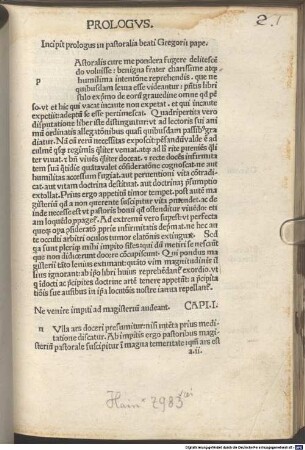 PROLOGVS.
2.1
Incipit prologus in pastoralia beati Gregorii pape.
Astoralis cure me pondera fugere delitescẽ
p
do voluisse: benigna frater charissime atqꝫ
humilima intentõne reprehendis. que ne
quibusdam leuia esse videantur: pñtis libri
stilo exp̃mo de eorũ grauedine omne qđ pẽ
so. vt et hic qui vacat incaute non expetat. et qui incaute
expetiit adeptũ se esse pertimescat. Quadripertita vero
disputatione liber iste distinguitur: vt ad lectoris sui ani
mũ ordinatis allegatõnibus quasi quibusdam passibꝰ gra
diatur. Nã cũ rerũ necessitas exposcit pẽsandũ valde ẽ ad
culmẽ quisqꝫ regiminis qĩliter veniat. atqꝫ ad h̃ rite pueniẽs qĩli
ter viuat. et bñ viuẽs qĩliter doceat. et recte docẽs infirmita
tem suã quotidie quãta valet cõsideratõne cognoscat. ne aut
humilitas accessum fugiat. aut peruentioni vita cõtradi-
cat. aut vitam doctrina destituat. aut doctrinã p̃sumptio
extollat. Prius ergo appetitũ timor temperet. post autẽ ma
gisteriũ qđ a non querente suscipitur vita cõmendet. ac de
inde necesse est vt pastoris bonũ qđ ostenditur viuẽdo eti
am loquẽdo ppaget. Ad extremũ vero supest vt perfecta
queqꝫ opa cõsideratio pprie infirmitatis depmat. ne hec an
te occulti arbitri oculos tumor elatõnis extinguat. Sed
qꝛ sunt pleriqꝫ
que non didicerunt docere cõcupiscunt. Qui pondus ma
gisterii tãto leuius estimant: quãto vim magnitudinis il
lius ignorant: ab ip̃o libri huius rephẽdanť exordio. vt
q indocti ac p̃cipites doctrine artẽ tenere appetũt: a p̃cipita
tiõis sue ausibus in ip̃a locutõis nostre ianua repellanť.
Ne venire imꝑiti ad magisteriũ audeant. CAP. I.
n Vlla ars doceri presumitur: nisi intẽta prius medi
tatione discatur. Ab impitis ergo pastoribus magi-
steriũ pastorale suscipitur ĩ magna temeritate: qm̃ ars est
a.ii.
Hain * 7983